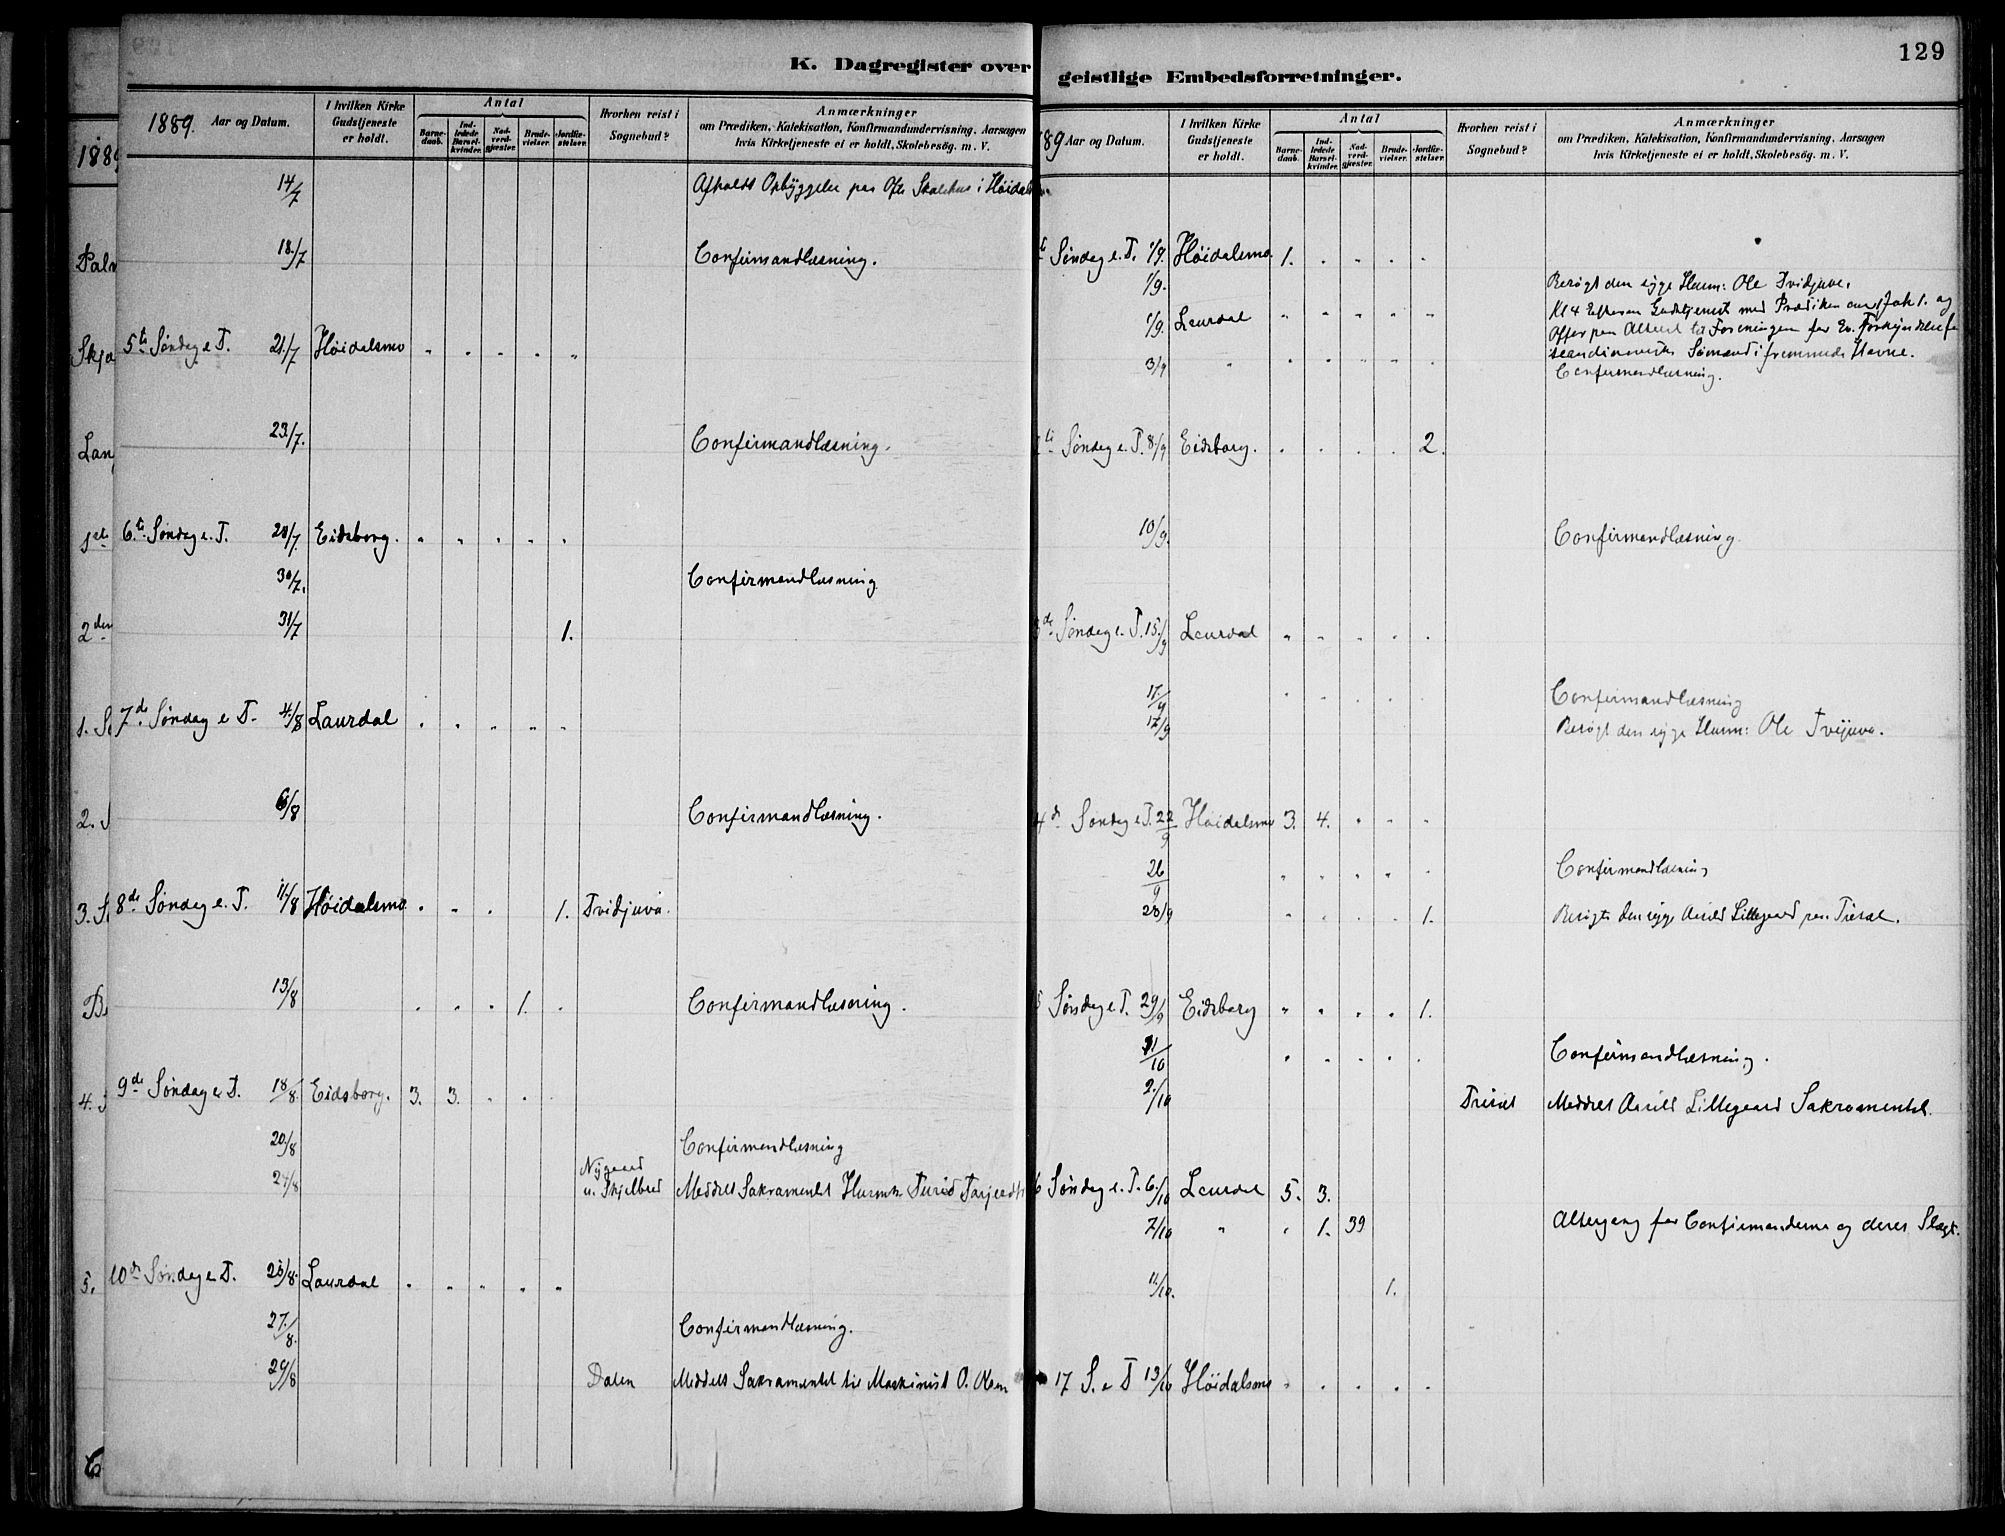 129
K. Dagregister over
1889. Aar og Datum.
I hvilken Kirke Gudstjeneste er holdt.
Antal
Barne-daab.
Ind-ledede Barsel-kvinder.
Nad-verd-gjester.
Brude-vielser.
Jordfæ-stelser.
Hvorhen reist i Sognebud?
Anmærkninger
om Prædiken, Katekisation, Konfirmandundervisning, Aarsagen
hvis Kirketjeneste ei er holdt, Skolebesøg. m. V.
14/7 Afholdt Opbyggelse paa Ofte Skolehus i Høidalsmo
18/7 Confirmandlæsning.
5te Søndag e. T. 21/7 Høidalsmo " " " " "
23/7. Confirmandlæsning.
6te Søndag e. T. 28/7. Eidsborg. " " " " "
30/7. Confirmandlæsning
31/7 1.
7de Søndag e. T. 4/8 Laurdal " " " " "
6/8 Confirmandlæsning.
8de Søndag e. T. 11/8 Høidalsmo " " " 1. Tvidjuva.
13/8 " " " 1. " Confirmandlæsning.
9de Søndag e. T. 18/8. Eidsborg. 3. 3. " " "
20/8 Confirmandlæsning
Nygaard
24/8 u. Skjelbred Meddelt Sakramentet Husmk Turid Tarjeidt
10de Søndag e. T. 25/8. Laurdal " " " " "
27/8. Confirmandlæsning.
29/8 Dalen Meddelt Sakramentet til Maskinist O. Olsen
geistlige Embedsforretninger.
89 Aar og Datum.
I hvilken Kirke Gudstjeneste er holdt.
Antal
Barne-daab.
Ind-ledede Barsel-kvinder.
Nad-verd-gjester.
Brude-vielser.
Jordfæ-stelser.
Hvorhen reist i Sognebud?
Anmærkninger
om Prædiken, Katekisation, Konfirmandundervisning, Aarsagen
hvis Kirketjeneste ei er holdt, Skolebesøg. m. V.
Søndag e. T. 1/9. Høidalsmo 1. " " " "
1/9. Besøgt den syge Husm: Ole Tvidjuva.
1/9. Laurdal " " " " " Kl 4 Efterm Gudstjenest med Prædiken over Joh 1. og
Offer paa Alteret til Foreningen for Ev. Forkyndelse f
scandinaviske Sømænd i fremmede Havne.
3/9 " " " " " " Confirmandlæsning.
Søndag e. T. 8/9 Eidsborg. " " " " 2.
10/9. Confirmandlæsning.
de Søndag e. T. 15/9 Laurdal " " " " "
17/9 " " " " Confirmandlæsning
17/9 Besøgt den syge Husm: Ole Tvijuva.
4de Søndag e. T. 22/9 Høidalsmo 3. 4. " " "
26/9 " " " " " Confirmandlæsning
28/9 " " " " 1. Besøgt den syge Aasild Lillegaard paa Triset.
Søndag e. T. 29/9 Eidsborg " " " " 1.
1/10 " " " " " Confirmandlæsning.
2/10 Triset Meddelt Aasild Lillegaard Sakramentet.
6 Søndag e. T. 6/10 Laurdal 5. 3.
7/10 " " 1. 39 Altergang for Confirmanderne og deres Slægt.
11/10. 1.
17 S. e T 13/10 Høidalsmo " " " " "
1889
Skja
Lan
2den